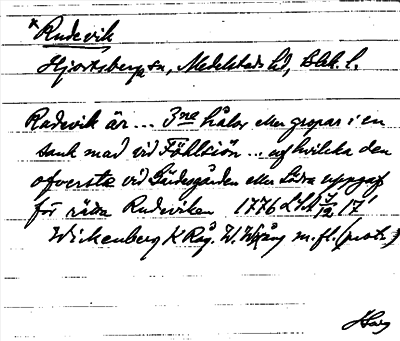 * Rudevik
Hjortsberga sn, Medelstads hd, Blek. l.
Rudevik är ... 3ne hålor eller gropar i en
sank mad vid Föhlsiön ... af hvilcka den
ofverste vid Gärdesgården eller Södra uppgaf
för rätta Rudeviken 1776 LSA 7/12 17
Wickenberg K Råg. W. Wång m.fl. (prot.)